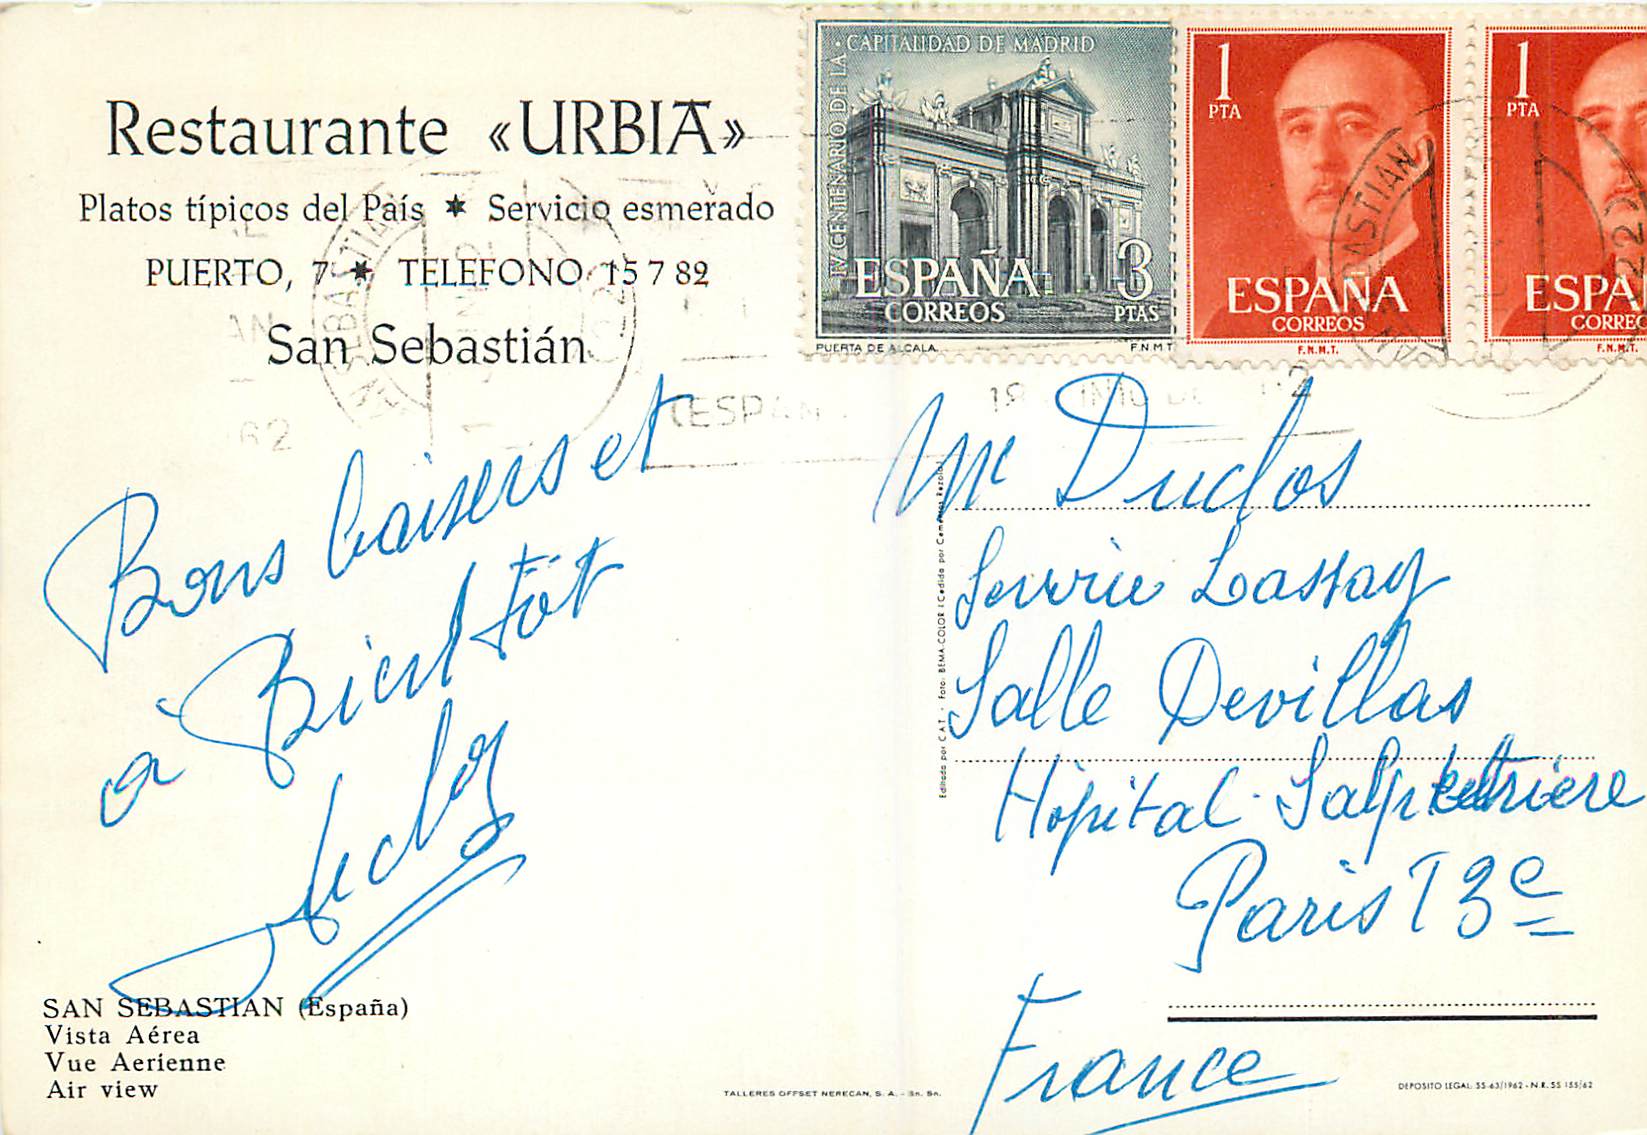 Restaurante «URBIA»
Platos típicos del País ✶ Servicio esmerado
PUERTO, 7 ✶ TELEFONO 15 7 82
San Sebastián
· CAPITALIDAD DE MADRID
IV CENTENARIO DE LA
ESPAÑA 3
CORREOS PTAS
PUERTA DE ALCALA. F.N.M.T
1
PTA
ESPAÑA
CORREOS
F.N.M.T.
1
PTA
ESPA
CORREO
F.N.M.T.
Bons baisers et
a Bientôt
Mr Duclos
Service Lassay
Salle Devillas
Hôpital Salpetriere
Paris 13e
France
Editada por C.A.T. - Foto: BEMA-COLOR (Cedida por Cementos Rezola)
SAN SEBASTIAN (España)
Vista Aérea
Vue Aerienne
Air view
TALLERES OFFSET NERECAN, S. A. - Sn. Sn.
DEPOSITO LEGAL: SS-63/1962 - N.R. SS 155/62